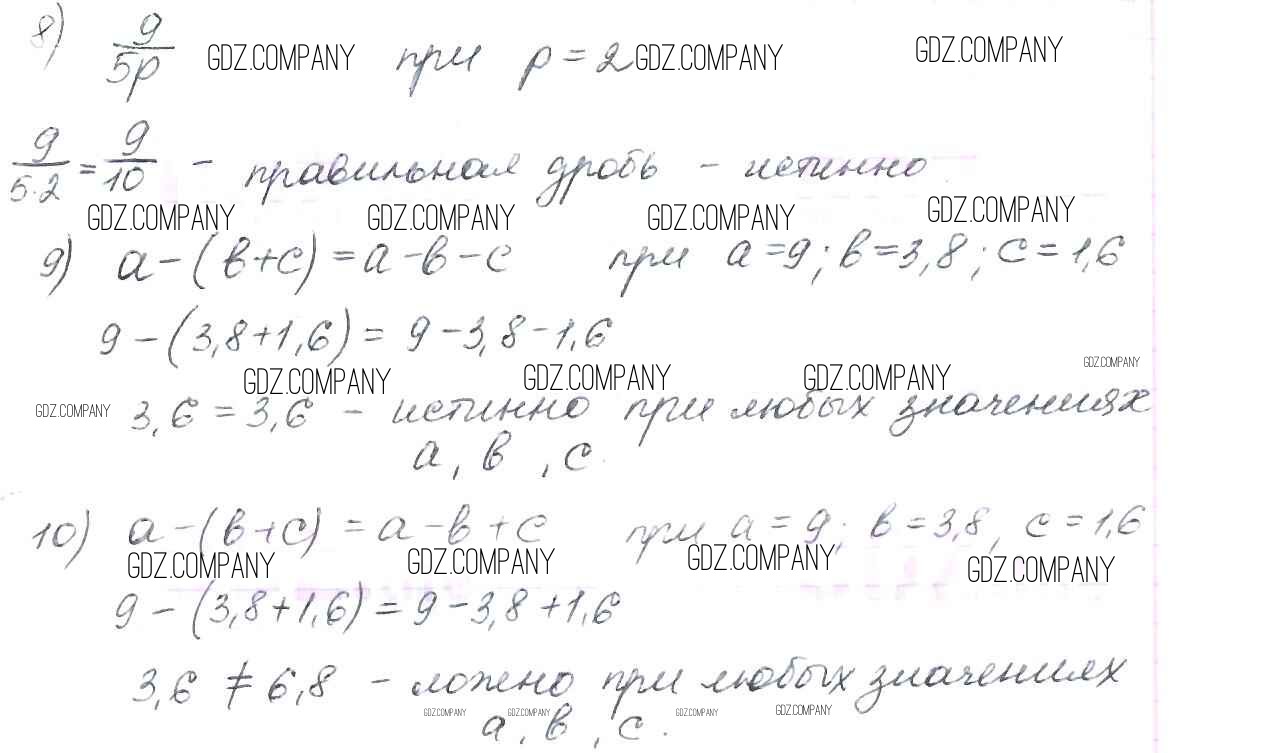 8) 9/5p GDZ.COMPANY при p = 2 GDZ.COMPANY GDZ.COMPANY
9/5·2 = 9/10 – правильная дробь – истинно
GDZ.COMPANY GDZ.COMPANY GDZ.COMPANY GDZ.COMPANY
9) а – (в + с) = а – в – с при а = 9; в = 3,8; с = 1,6
9 – (3,8 + 1,6) = 9 – 3,8 – 1,6
GDZ.COMPANY GDZ.COMPANY GDZ.COMPANY GDZ.COMPANY
GDZ.COMPANY 3,6 = 3,6 – истинно при любых значениях
а, в, с.
10) а – (в + с) = а – в + с при а = 9; в = 3,8, с = 1,6
GDZ.COMPANY GDZ.COMPANY GDZ.COMPANY GDZ.COMPANY
9 – (3,8 + 1,6) = 9 – 3,8 + 1,6
3,6 ≠ 6,8 – ложно при любых значениях
GDZ.COMPANY GDZ.COMPANY GDZ.COMPANY GDZ.COMPANY
а, в, с.